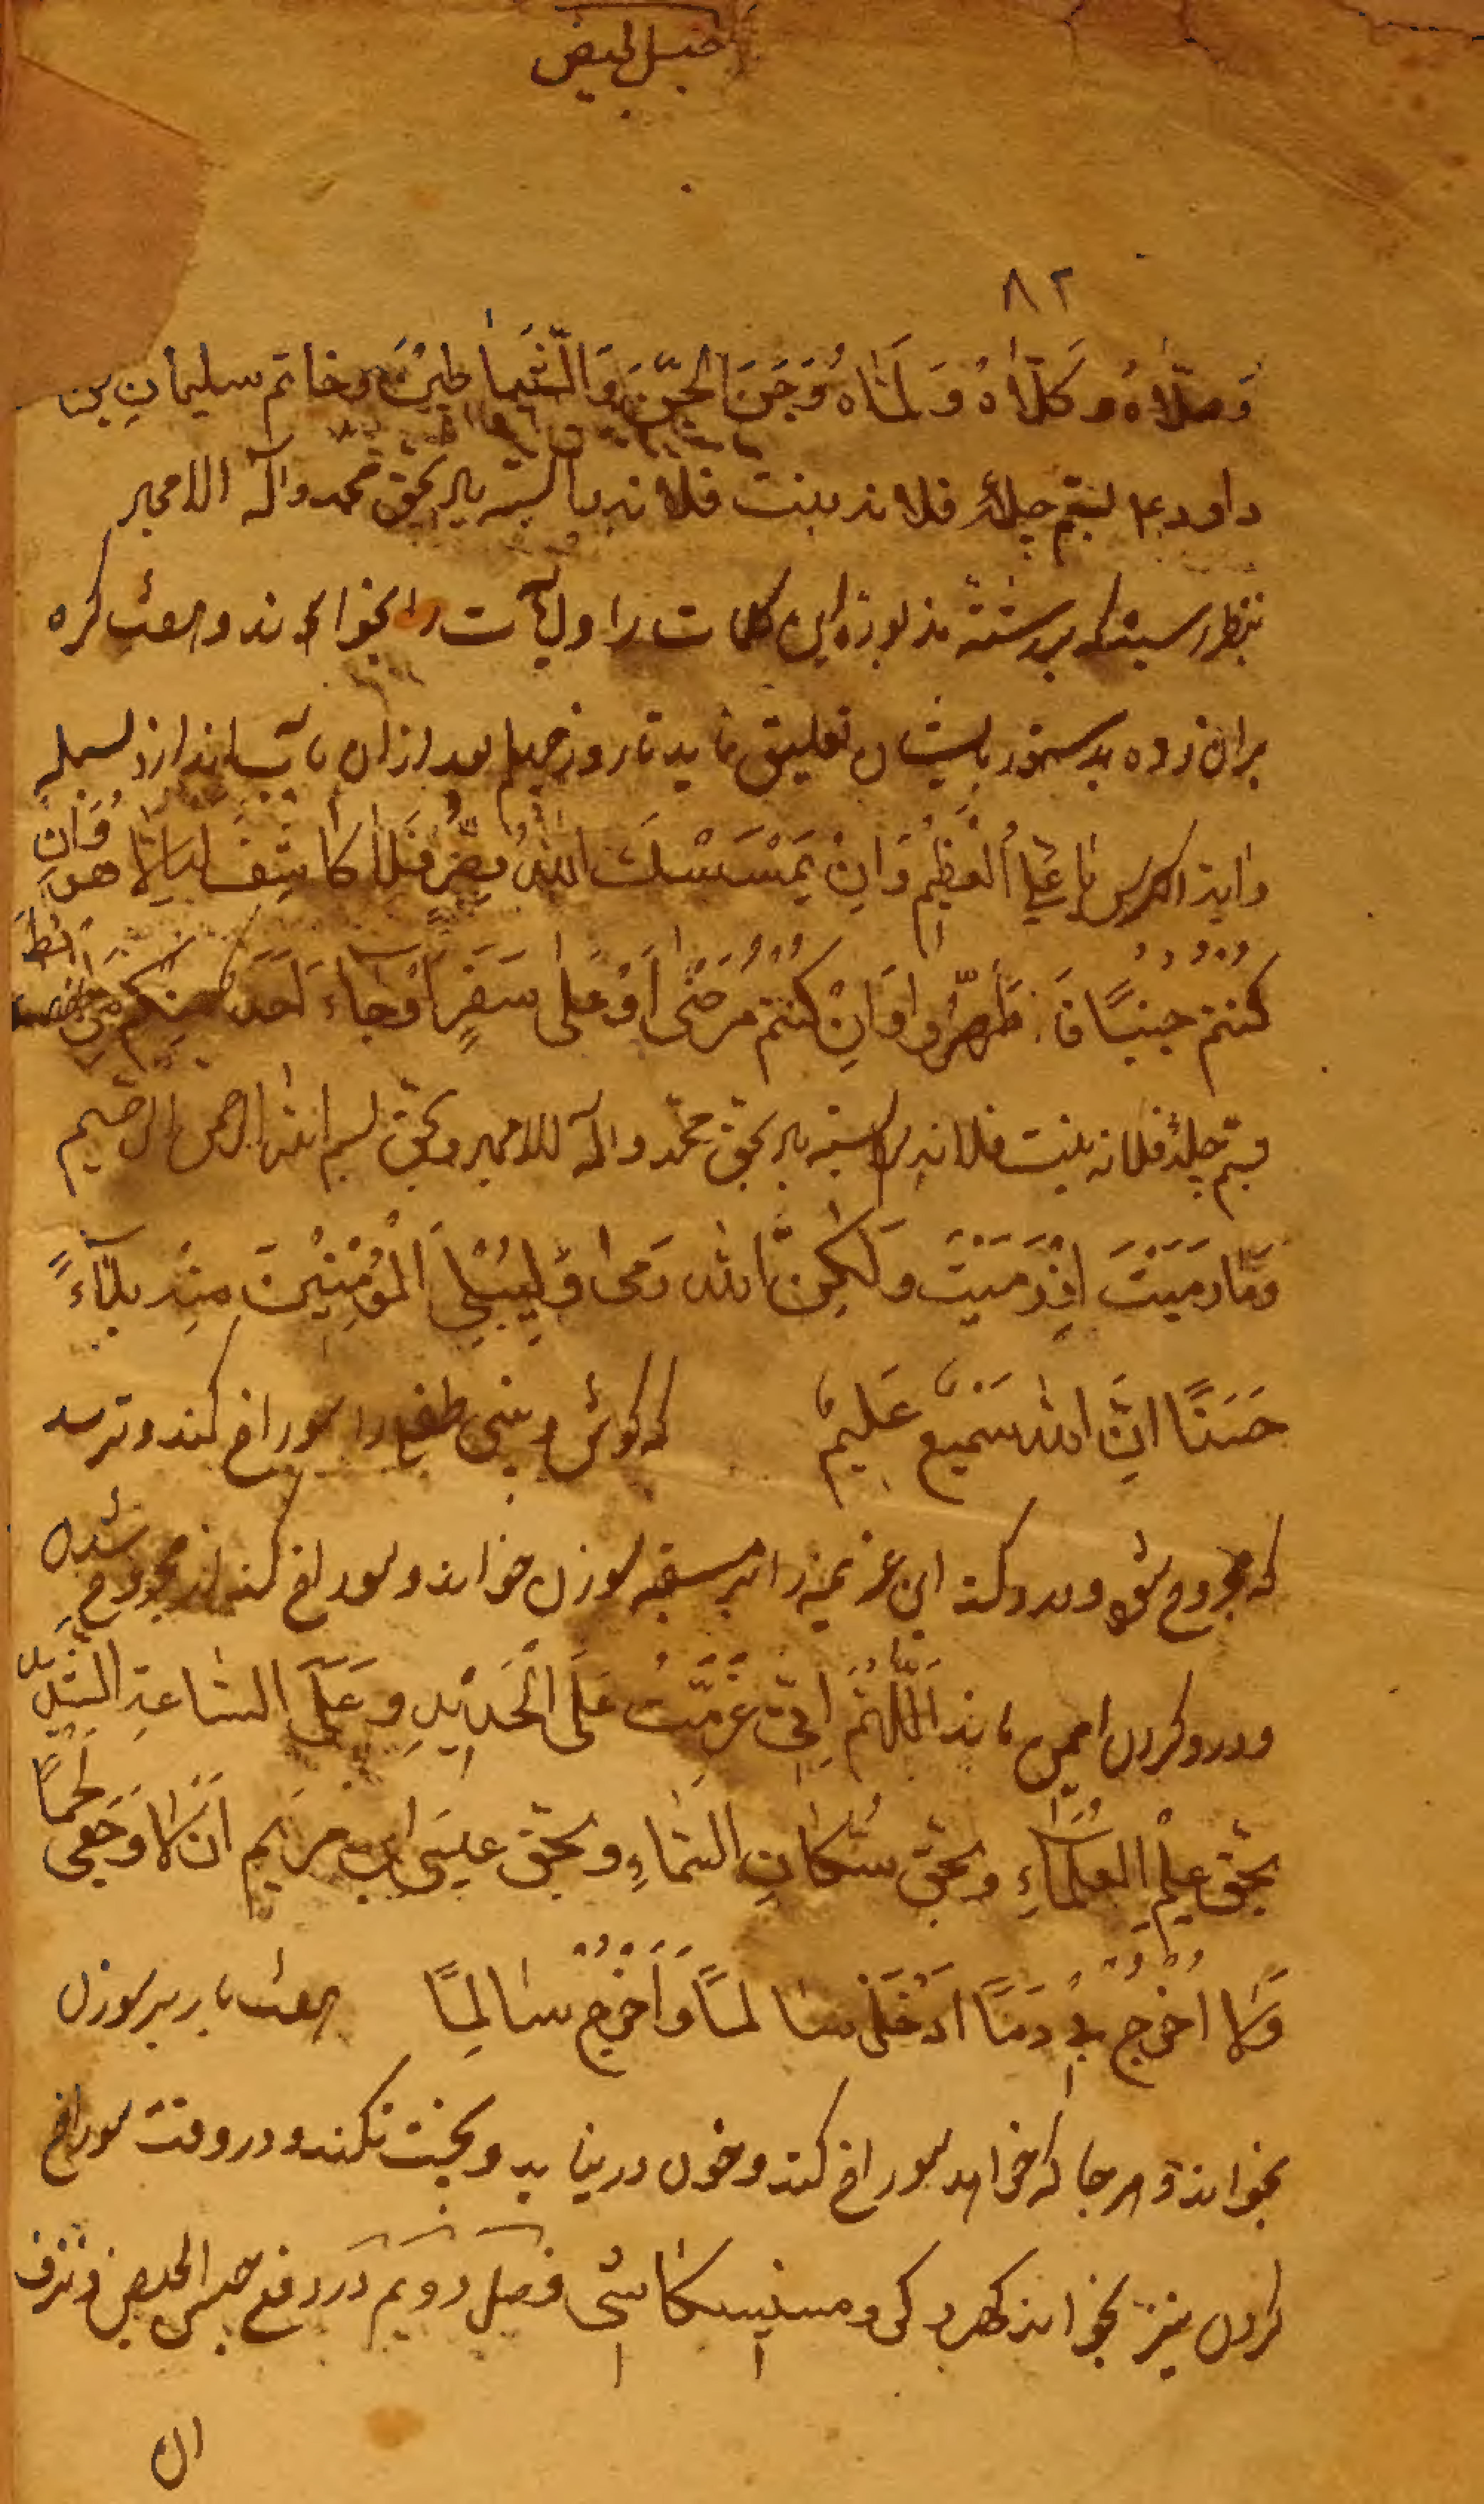 حبس الحیض
۸۲
وَصَلّاهُ وَ کَلّاهُ وَ لَمَاهُ وَجَنَ الجِنَّ وَالشَّیاطِینَ وخاتم سلیمانِ بن
داود ع بستم چلهٔ فلانه بنت فلانه بحق محمد وآله الامجاد
بنظر رسیده که بر رشته این کلمات را و آیات را بخواند و هفت گره
بران زده بدستور بایشان تعلیق نماید تا روز چهلم بعد ازان بآب اندازد بسمله
وایة الکرسی تا عَلِیُّ العَظِیم وَاِن یَمْسَسْکَ اللّٰهُ بِضُرٍّ فَلَا کَاشِفَ لَهُ اِلَّا هو وَاِن
کُنتم جُنُبًا فَاطَّهَّرُوا وَاِنْ کُنْتُم مَرْضٰی اَوْ عَلٰی سَفَرٍ اَوْ جَاءَ اَحَدٌ مِنکُم مِنَ الغائط
بستم چلهٔ فلانه بنت فلانه بحق محمّد وآله الامجاد وبحق بسم الله الرحمن الرحیم
وَمَا رَمَیْتَ اِذْ رَمَیْتَ وَلٰکِنَّ اللّٰهَ رَمٰی وَلِیُبْلِیَ الْمُؤمِنِینَ مِنْهُ بَلَآءً
حَسَنًا اِنَّ اللّٰهَ سَمِیعٌ عَلِیمٌ که گوش و بینی طفل را سوراخ کند و ترسد
که مجروح شود و درد کند این عزیمه را بر سوزن خواند و سوراخ کند از مجروح شدن
و درد کردن ایمن ماند اَللّٰهُمَّ اِنّی عَزَمْتُ عَلَی الْحَدِیدِ وَعَلَی السَّاعَةِ الشَّدِید
بحَقِّ عِلْمِ الْعُلَمَاءِ وبحَقِّ سُکّانِ السَّمَاءِ وبحَقِّ عِیسَی ابن مَریَم اَن لَا وَجَعِی لَحمًا
وَلَا اُخْرِجُ دَمًا اَدْخِلْ سَالِمًا وَاَخْرِجْ سَالِمًا هفت بار بر سوزن
بخواند و هر جا که خواهد سوراخ کند و خون در نیاید و پخت نکند و در وقت سوراخ
کردن نیز بخواند فصل دویم در دفع حبس الحیض و نزف
ان